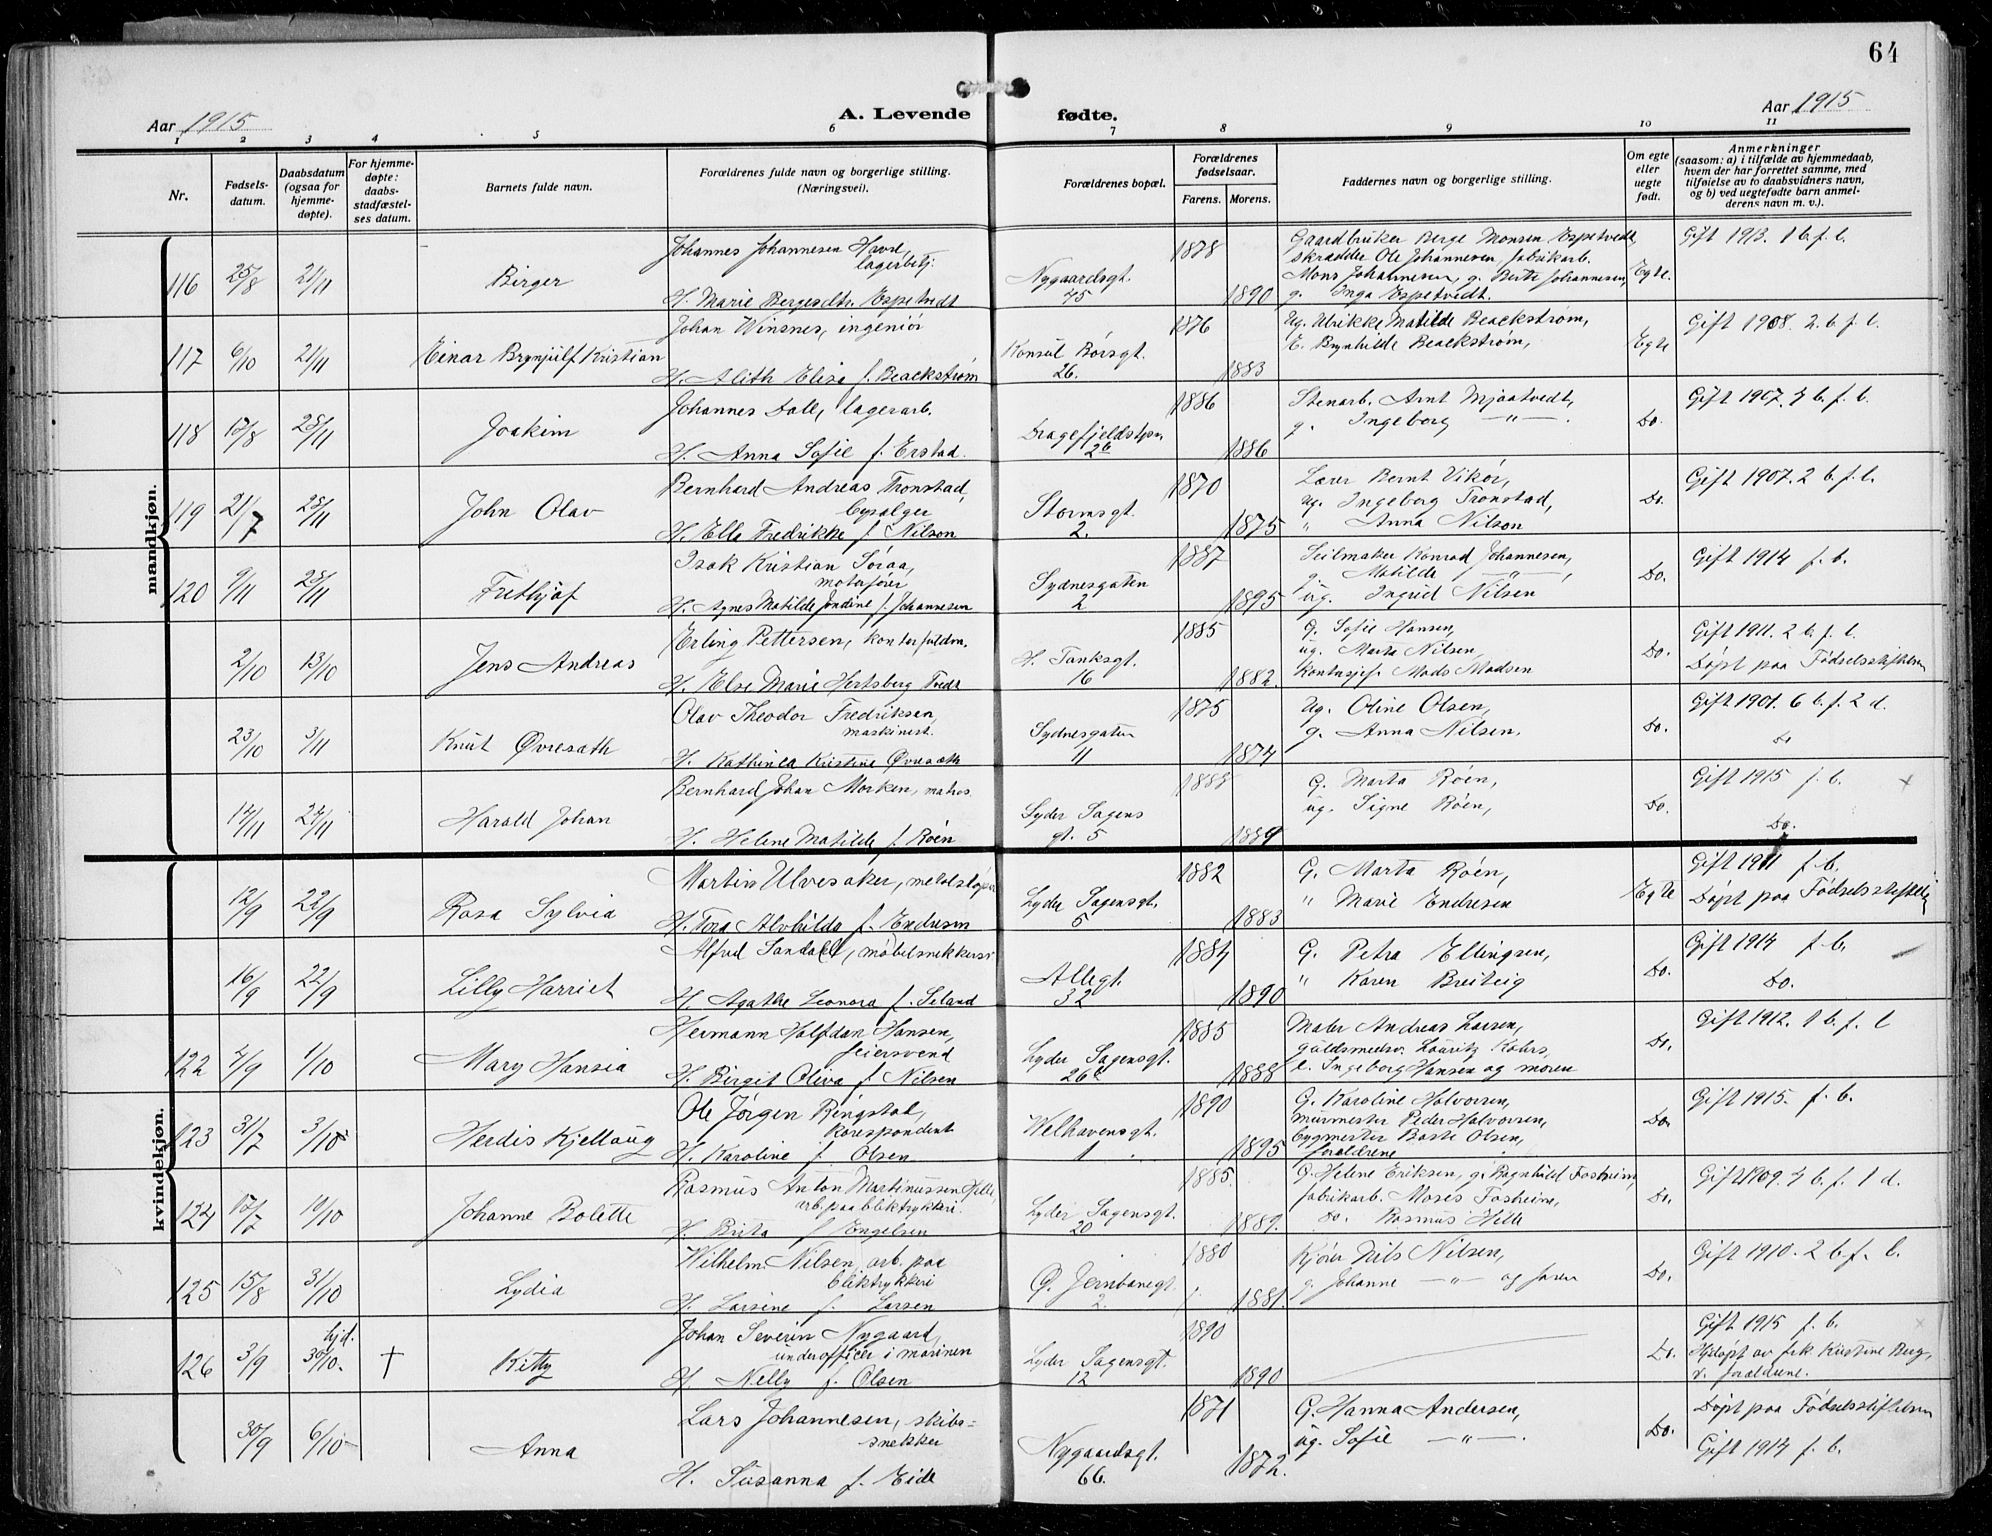 64
Aar 1915
A. Levende
fødte.
Aar 1915
1 2 3 4 5 6 7 8 9 10 11
Nr.
Fødsels-
datum.
Daabsdatum
(ogsaa for
hjemme-
døpte).
For hjemme-
døpte:
daabs-
stadfæstel-
ses datum.
Barnets fulde navn.
Forældrenes fulde navn og borgerlige stilling.
(Næringsvei).
Forældrenes bopæl.
Forældrenes
fødselsaar.
Farens. Morens.
Faddernes navn og borgerlige stilling.
Om egte
eller
uegte
født.
Anmerkninger
(saasom: a) i tilfælde av hjemmedaab,
hvem der har forrettet samme, med
tilføielse av to daabsvidners navn,
og b) ved uegtefødte barn anmel-
derens navn m. v.).
mandkjøn.
116 25/8 21/11 Birger
Johannes Johannesen Havre,
lagerbetj.
H. Marie Bergesdtr. Espetvedt
Nygaardsgt.
45
1878
1890
Gaardbruker Berge Monsen Espetvedt,
skrædder Ole Johannesen, fabrikarb.
Mons Johannesen, g. Berte Johannesen,
g. Inga Espetvedt.
Egte.
Gift 1913. 1 b. f. l.
117 6/10 21/11 Einar Brynjulf Kristian
Johan Winsnes, ingeniør
H. Alith Elisa f. Beackstrøm
Konsul Børsgt.
26.
1876
1883
Ug. Ulrikke Matilde Beackstrøm,
E. Brynhilde Beackstrøm,
Egte
Gift 1908. 2. b. f. l.
118 17/8 28/11 Joakim
Johannes Dale, lagerarb.
H. Anna Sofie f. Erstad.
Dragefjeldstpn
26
1886
1886
Stenarb. Arnt Mjaatvedt,
g. Ingeborg — " — .
Do.
Gift 1907. 4 b. f. l.
119 21/7 28/11 John Olav
Bernhard Andreas Tronstad,
bysælger
H. Elle Fredrikke f. Nilson
Stormsgt.
2.
1870
1875
Lærer Bernt Vikør,
ug. Ingeborg Tronstad,
" Anna Nilson
Do.
Gift 1907. 2 b. f. l.
120 9/11 28/11 Frithjof
Isak Kristian Søraa,
motorfører
H. Agnes Matilde Jondine f. Johannesen
Sydnesgaten
2
1887
1895
Seilmaker Konrad Johannesen,
g. Matilde — " —,
ug. Ingrid Nilsen
Do.
Gift 1914 f. b.
2/10 13/10 Jens Andreas
Erling Pettersen, kontorfuldm.
H. Else Marie Hertsberg Tvedt
H. Tanksgt.
16
1885
1882.
G. Sofie Hansen,
ug. Marta Nilsen,
Kontorsjef Mads Madsen
Do.
Gift 1911. 2 b. f. l.
Døpt paa Fødselsstiftelsen
23/10 3/11 Knut Øvresæth
Olav Theodor Fredriksen,
maskinist.
H. Kathinca Kristine Øvresæth
Sydnesgaten
11
1875
1874
Ug. Oline Olsen,
g. Anna Nilsen.
Do.
Gift 1901. 6 b. f. 2 d.
Do
14/11 24/11 Harald Johan
Bernhard Johan Morken, matros
H. Helene Matilde f. Røen
Lyder Sagens
gt. 5
1889
G. Marta Røen,
ug. Signe Røen,
Do.
Gift 1915 f. b.
Do.
kvindekjøn.
12/9 22/9 Rosa Sylvia
Martin Ulvesaker, metalstøper
H. Tora Alvhilda f. Endresen
Lyder Sagensgt.
5
1882
1883
G. Marta Røen,
" Marie Endresen
Egte
Gift 1911 f. b.
Døpt paa Fødselsstiftelsen
16/9 22/9 Lilly Harriet
Alfred Sandall, møbelsnekkersv.
H. Agathe Leonora f. Seland
Allegt.
32
1884
1890
G. Petra Ellingsen,
" Karen Breiteig
Do.
Gift 1914 f. b.
Do.
122 4/9 1/10 Mary Hansia
Hermann Halfdan Hansen,
feiersvend
H. Birgit Oliva f. Nilsen
Lyder Sagensgt.
26
1885
1888
Maler Andreas Larsen,
guldsmedsv. Lauritz Kahrs,
e. Ingeborg Hansen og moren
Do.
Gift 1912. 1 b. f. l
123 31/7 3/10 Herdis Kjellaug
Ole Jørgen Ringstad,
korespondent
H. Karoline f. Olsen
Welhavensgt.
1
1890
1895
G. Karoline Halvorsen,
murmester Peder Halvorsen,
bygmester Baste Olsen,
forældrene
Do.
Gift 1915. f. b.
124 17/7 10/10 Johanne Bolette
Rasmus Anton Martinussen Hille,
arb. paa bliktrykkeri.
H. Brita f. Engelsen
Lyder Sagensgt.
20
1885.
1889.
G. Helene Eriksen, g. Ragnhild Fosheim,
fabrikarb. Moses Fosheim,
do. Rasmus Hille
Do.
Gift 1909. 4 b. f. 1 d.
125 15/8 31/10 Lydia
Wilhelm Nilsen, arb. paa
bliktrykkeri
H. Larsine f. Larsen
Ø. Jernbanegt.
2.
1880
1881.
Kjører Nils Nilsen,
g. Johanne — " — og faren
Do.
Gift 1910. 2 b. f. l.
126 3/9 hjd.
30/10. † Kitty
Johan Severin Nygaard,
underofficer i marinen
H. Nelly f. Olsen
Lyder Sagensgt.
12
1890
1890
Do.
Gift 1915 f. b.
Hjdøpt av frk. Kristine Berg,
v. forældrene.
30/9 6/10 Anna
Lars Johannesen, skibs=
snekker
H. Susanna f. Eide
Nygaardsgt.
66.
1871
1872.
G. Hanna Andersen,
ug. Sofie — " — .
Do.
Døpt paa Fødselsstiftelsen
Gift 1914 f. b.